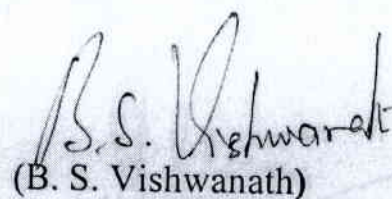 B. S. Vishwanath
(B. S. Vishwanath)